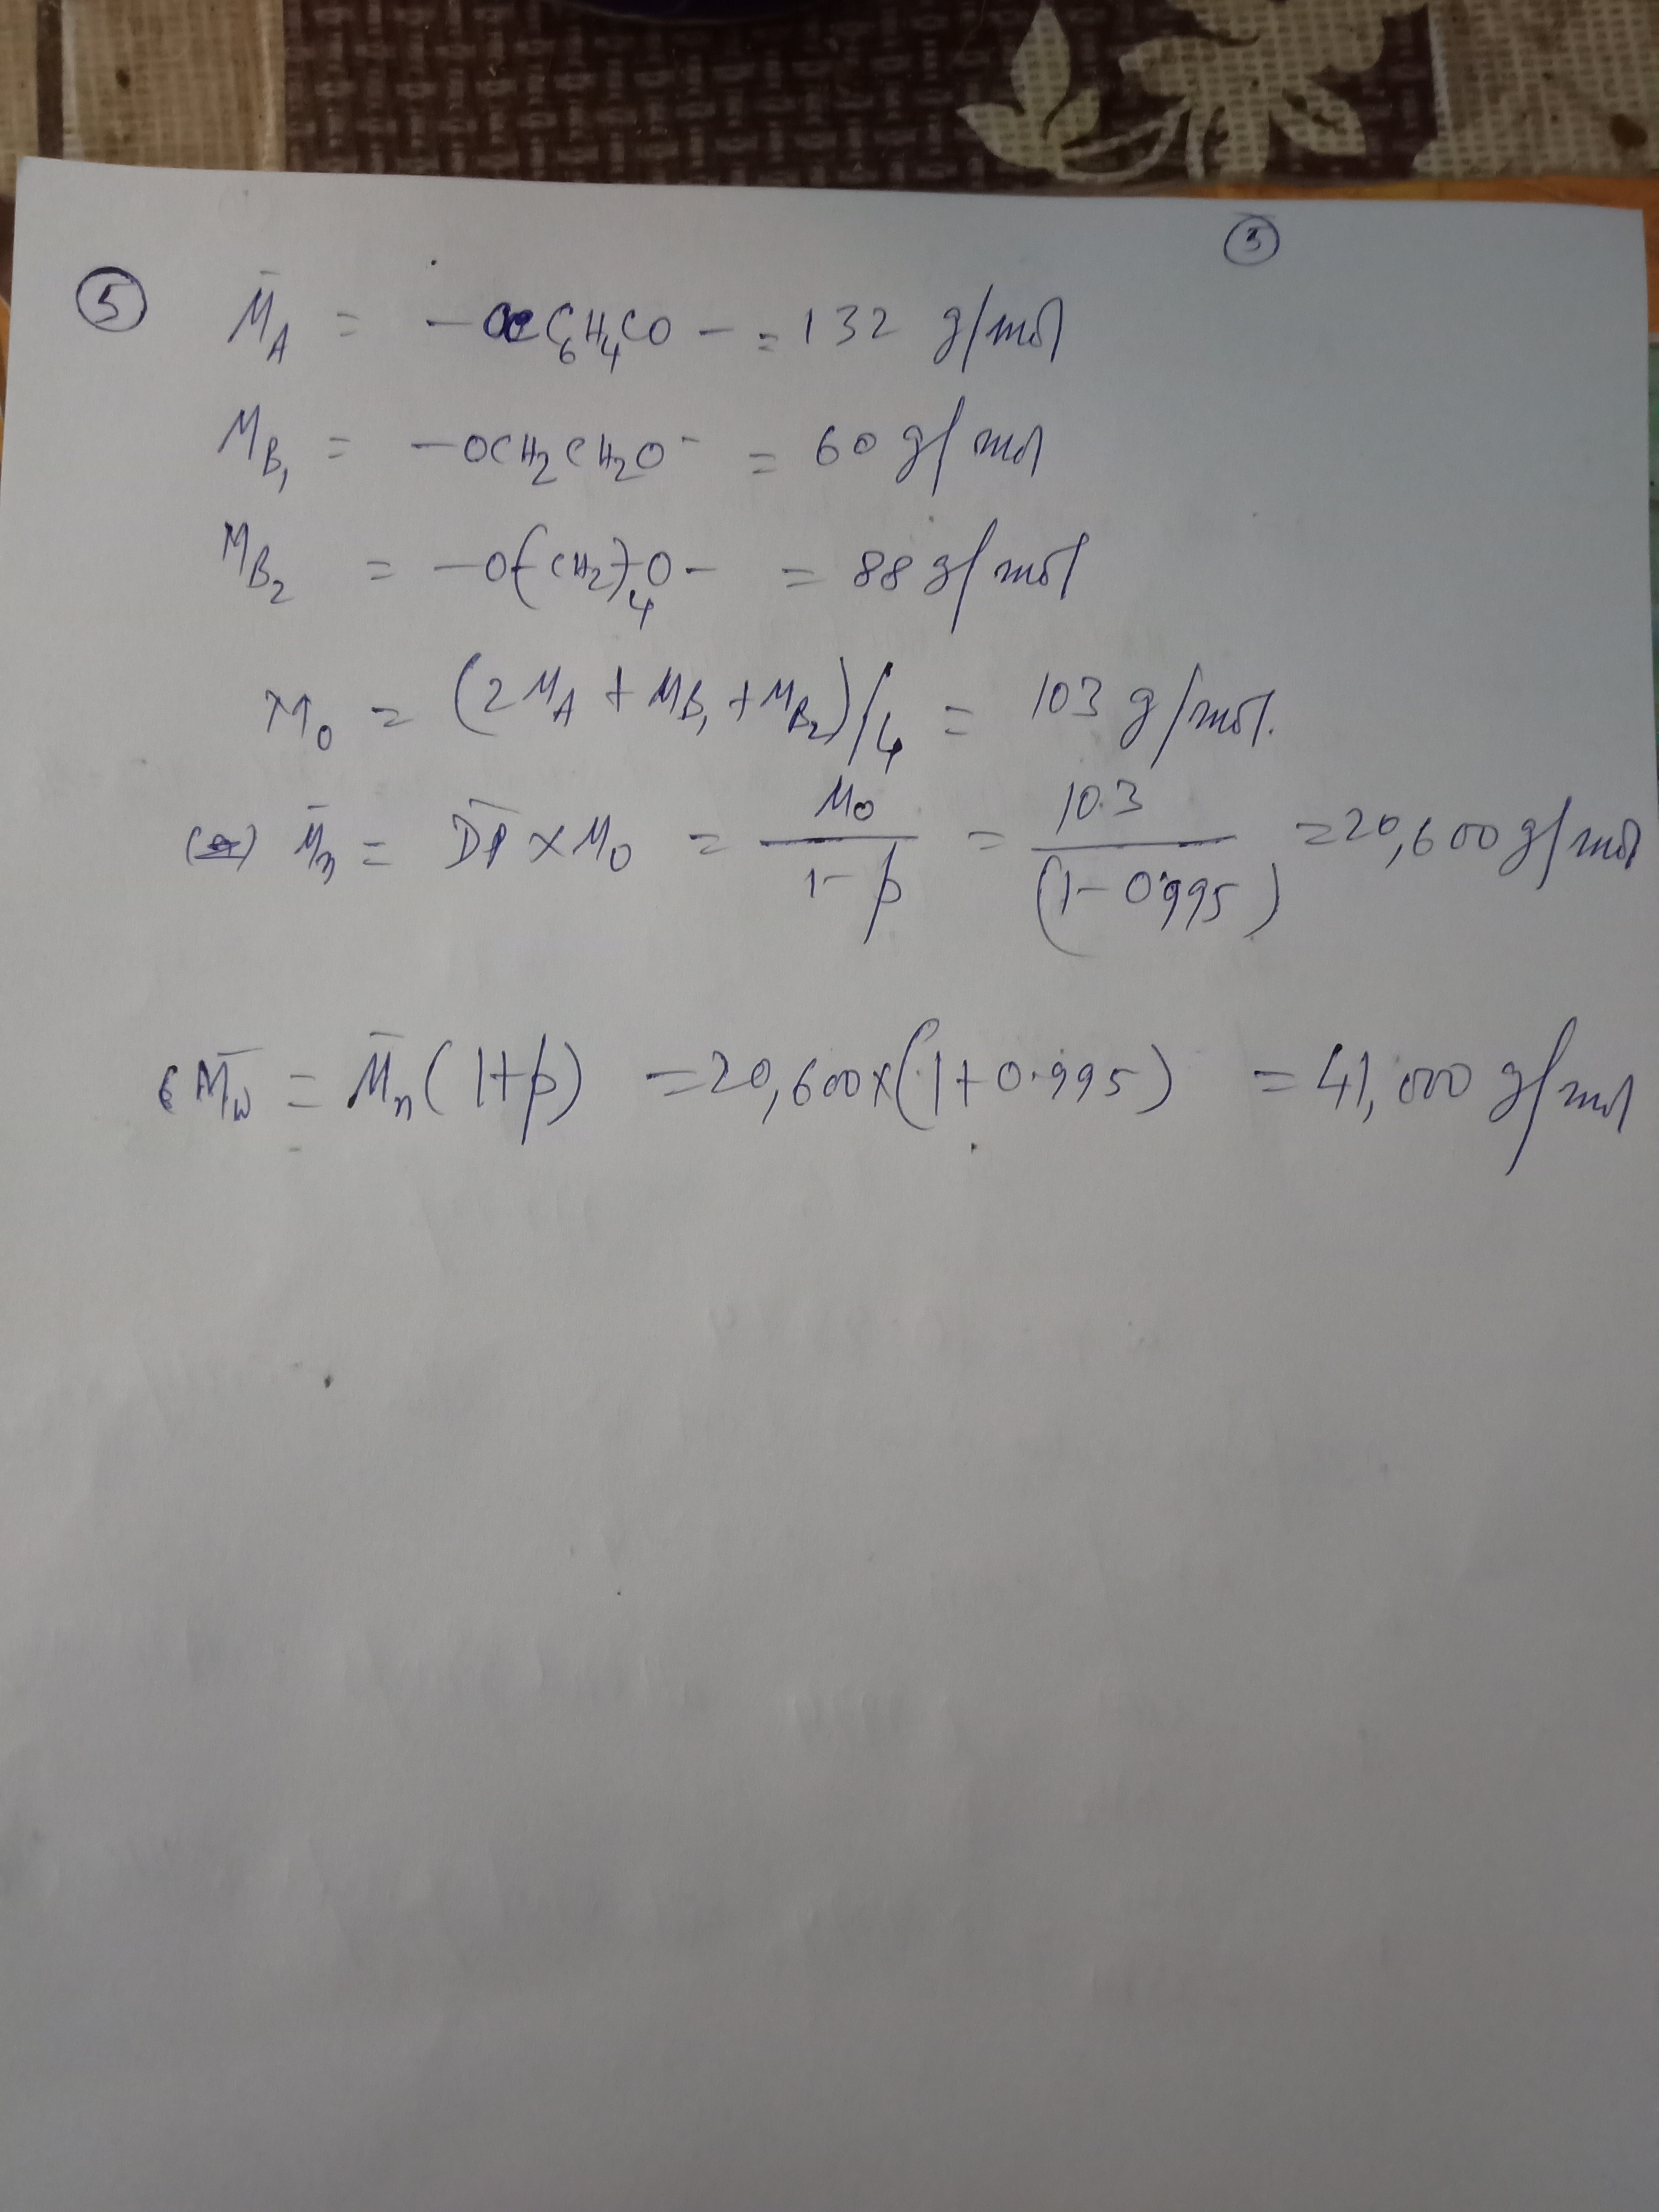 ③
⑤ M̄_A = -OCC₆H₄CO- = 132 g/mol
M_B₁ = -OCH₂CH₂O- = 60 g/mol
M_B₂ = -O(CH₂)₄O- = 88 g/mol
M₀ = (2M_A + M_B₁ + M_B₂)/4 = 103 g/mol.
M̄n = D̄P̄ × M₀ = M₀/(1-p) = 103/(1-0.995) = 20,600 g/mol
M̄w = M̄n(1+p) = 20,600×(1+0.995) = 41,000 g/mol